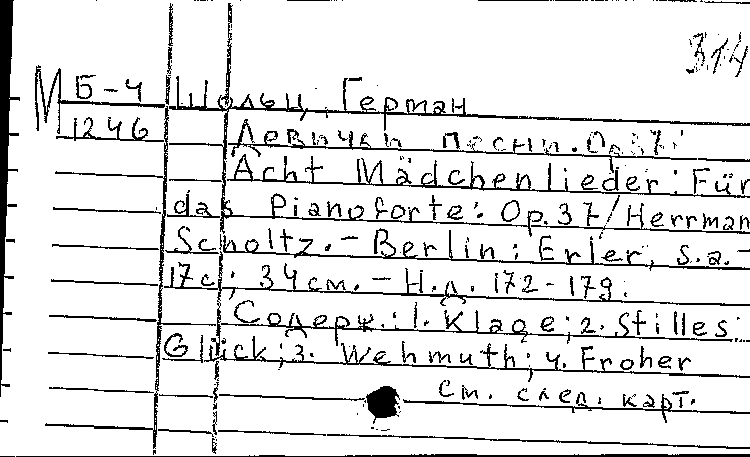 314
М Б-4 Шольц, Герман
1246 Девичьи песни. Op.37:
Acht Mädchenlieder: Für
das Pianoforte: Op.37/Herrman
Scholtz.- Berlin: Erler, s.a.-
17с; 34см. - Н.д. 172-179.
Содерж.: 1. Klage; 2. Stilles
Glück; 3. Wehmuth; 4. Froher
см. след. карт.